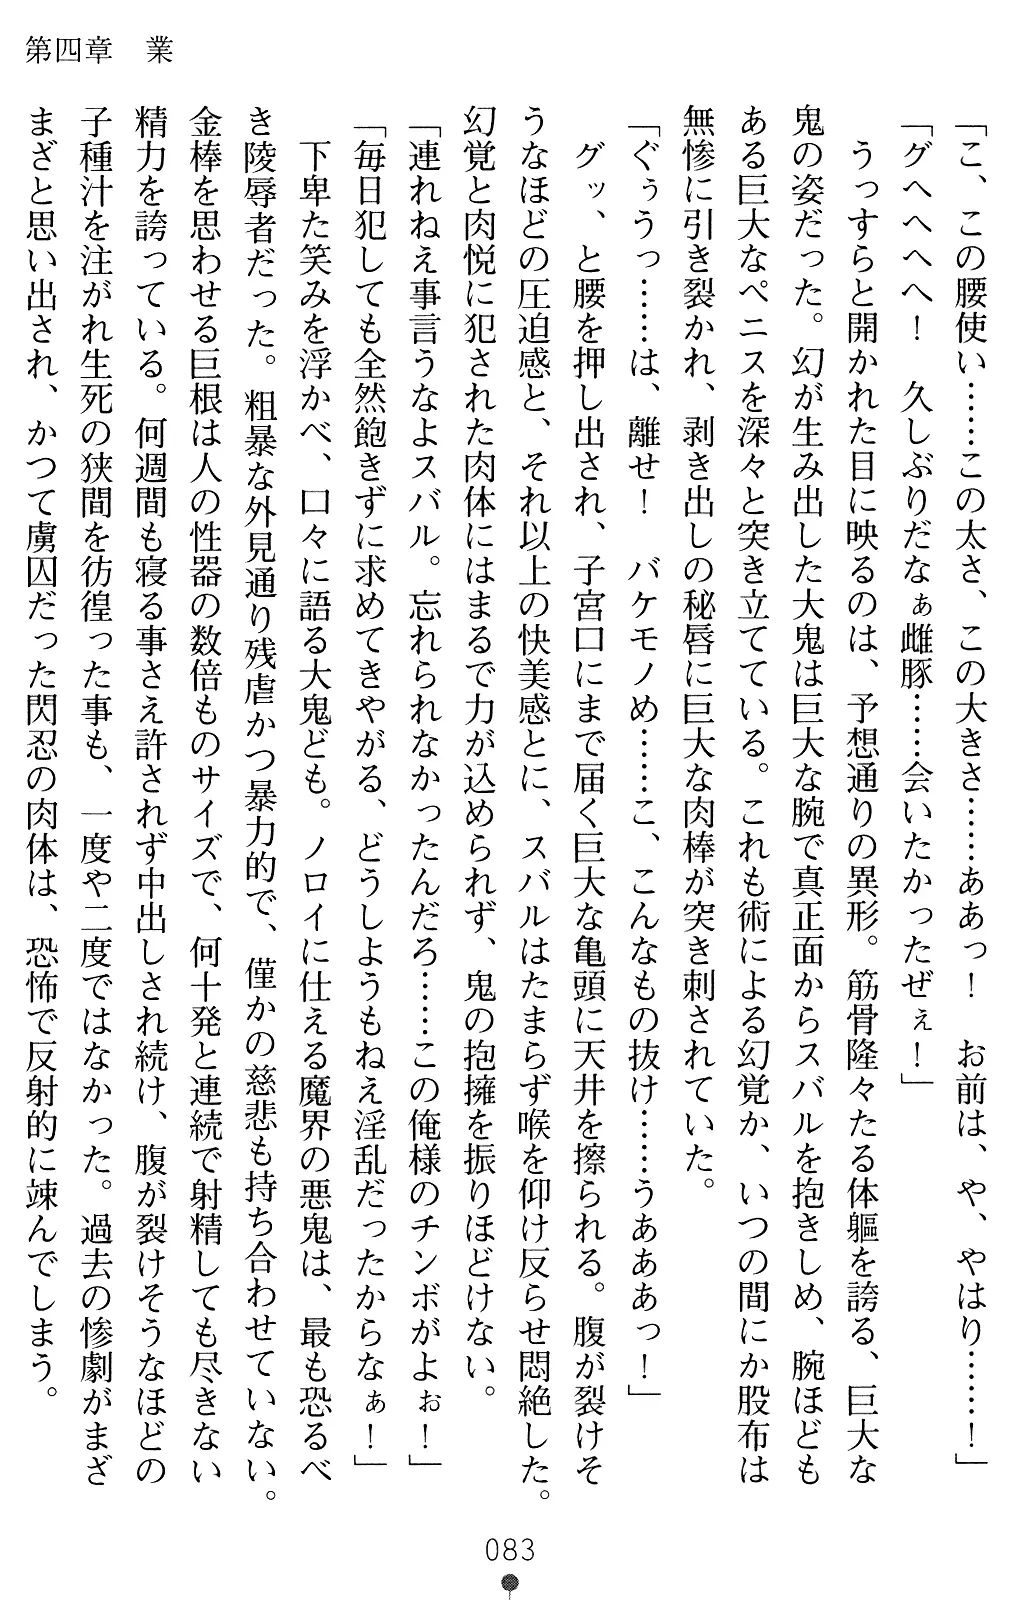 第四章　業
「こ、この腰使い……この太さ、この大きさ……ああっ！　お前は、や、やはり……！」
「グヘヘヘヘ！　久しぶりだなぁ雌豚……会いたかったぜぇ！」
　うっすらと開かれた目に映るのは、予想通りの異形。筋骨隆々たる体軀を誇る、巨大な
鬼の姿だった。幻が生み出した大鬼は巨大な腕で真正面からスバルを抱きしめ、腕ほども
ある巨大なペニスを深々と突き立てている。これも術による幻覚か、いつの間にか股布は
無惨に引き裂かれ、剥き出しの秘唇に巨大な肉棒が突き刺されていた。
「ぐぅうっ……は、離せ！　バケモノめ……こ、こんなもの抜け……うあああっ！」
　グッ、と腰を押し出され、子宮口にまで届く巨大な亀頭に天井を擦られる。腹が裂けそ
うなほどの圧迫感と、それ以上の快美感とに、スバルはたまらず喉を仰け反らせ悶絶した。
幻覚と肉悦に犯された肉体にはまるで力が込められず、鬼の抱擁を振りほどけない。
「連れねえ事言うなよスバル。忘れられなかったんだろ……この俺様のチンボがよぉ！」
「毎日犯しても全然飽きずに求めてきやがる、どうしようもねえ淫乱だったからなぁ！」
　下卑た笑みを浮かべ、口々に語る大鬼ども。ノロイに仕える魔界の悪鬼は、最も恐るべ
き陵辱者だった。粗暴な外見通り残虐かつ暴力的で、僅かの慈悲も持ち合わせていない。
金棒を思わせる巨根は人の性器の数倍ものサイズで、何十発と連続で射精しても尽きない
精力を誇っている。何週間も寝る事さえ許されず中出しされ続け、腹が裂けそうなほどの
子種汁を注がれ生死の狭間を彷徨った事も、一度や二度ではなかった。過去の惨劇がまざ
まざと思い出され、かつて虜囚だった閃忍の肉体は、恐怖で反射的に竦んでしまう。
083